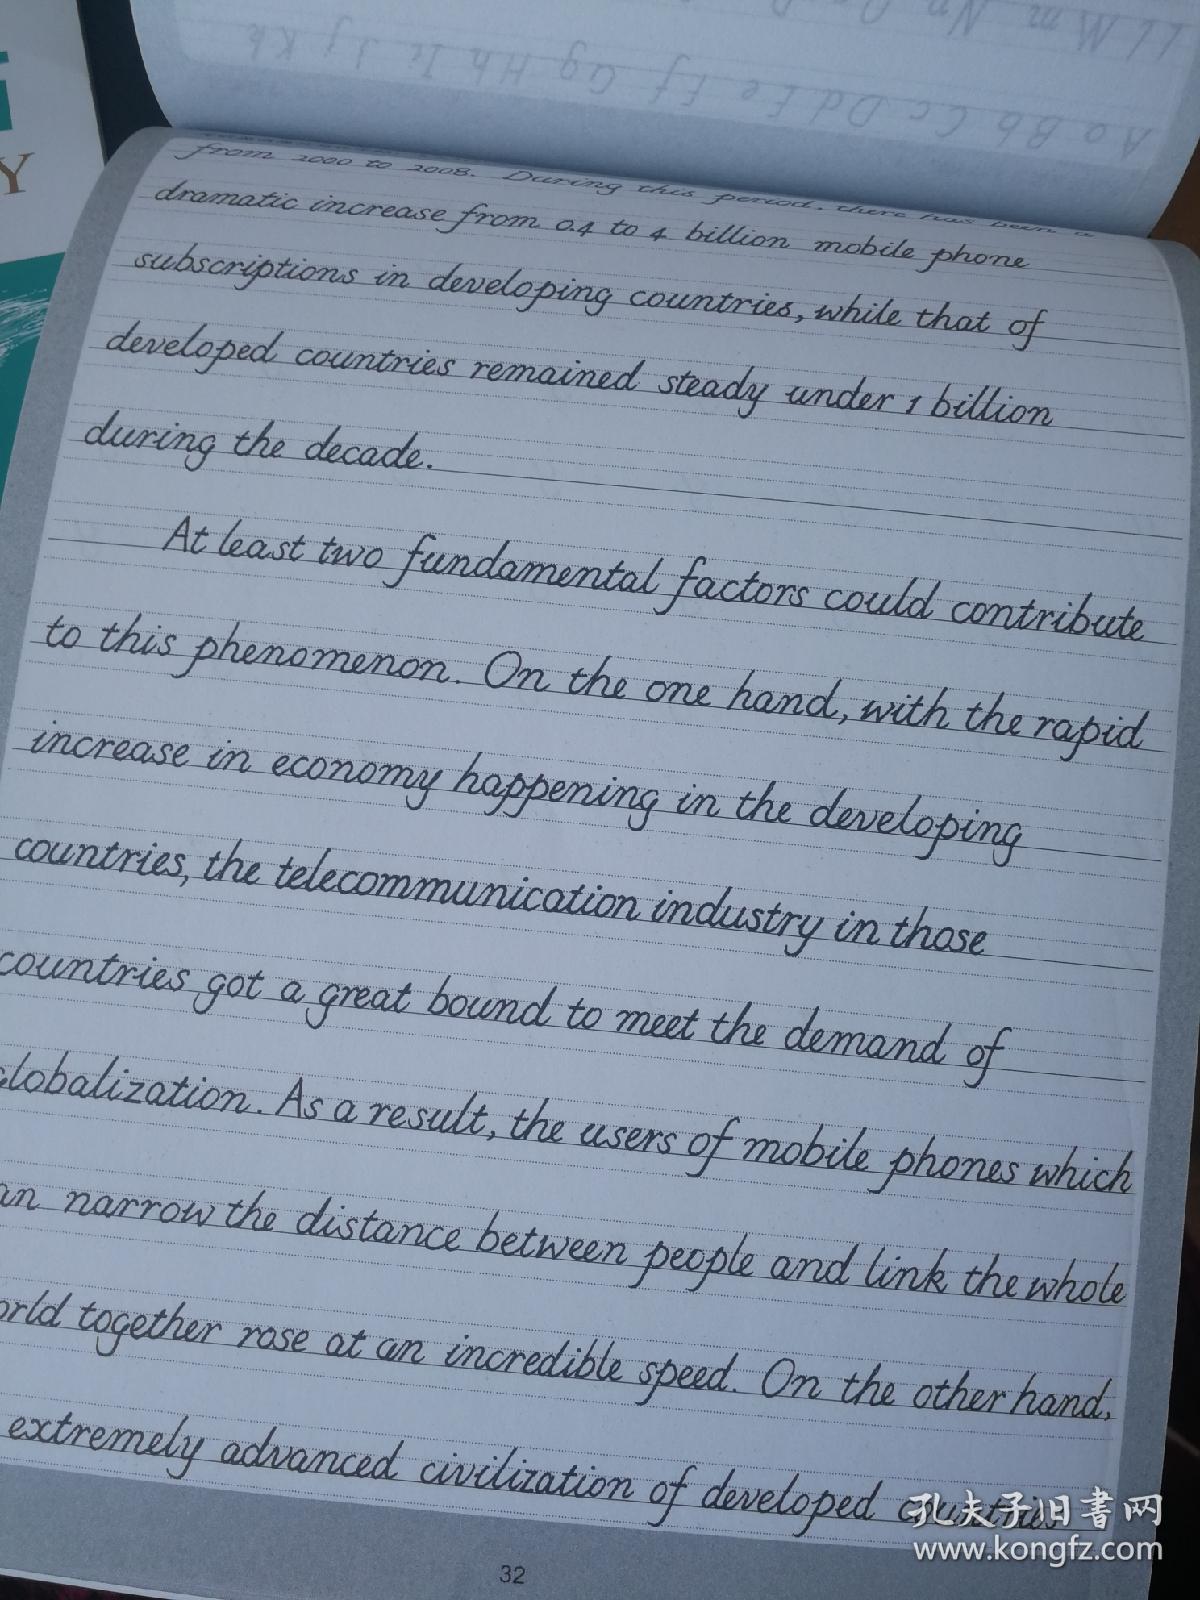 Ll Mm Nn
Aa Bb Cc Dd Ee Ff Gg Hh Ii Jj Kk
Y
from 2000 to 2008. During this period, there has been a
dramatic increase from 0.4 to 4 billion mobile phone
subscriptions in developing countries, while that of
developed countries remained steady under 1 billion
during the decade.
At least two fundamental factors could contribute
to this phenomenon. On the one hand, with the rapid
increase in economy happening in the developing
countries, the telecommunication industry in those
countries got a great bound to meet the demand of
globalization. As a result, the users of mobile phones which
an narrow the distance between people and link the whole
orld together rose at an incredible speed. On the other hand,
extremely advanced civilization of developed countries
32
孔夫子旧书网
www.kongfz.com